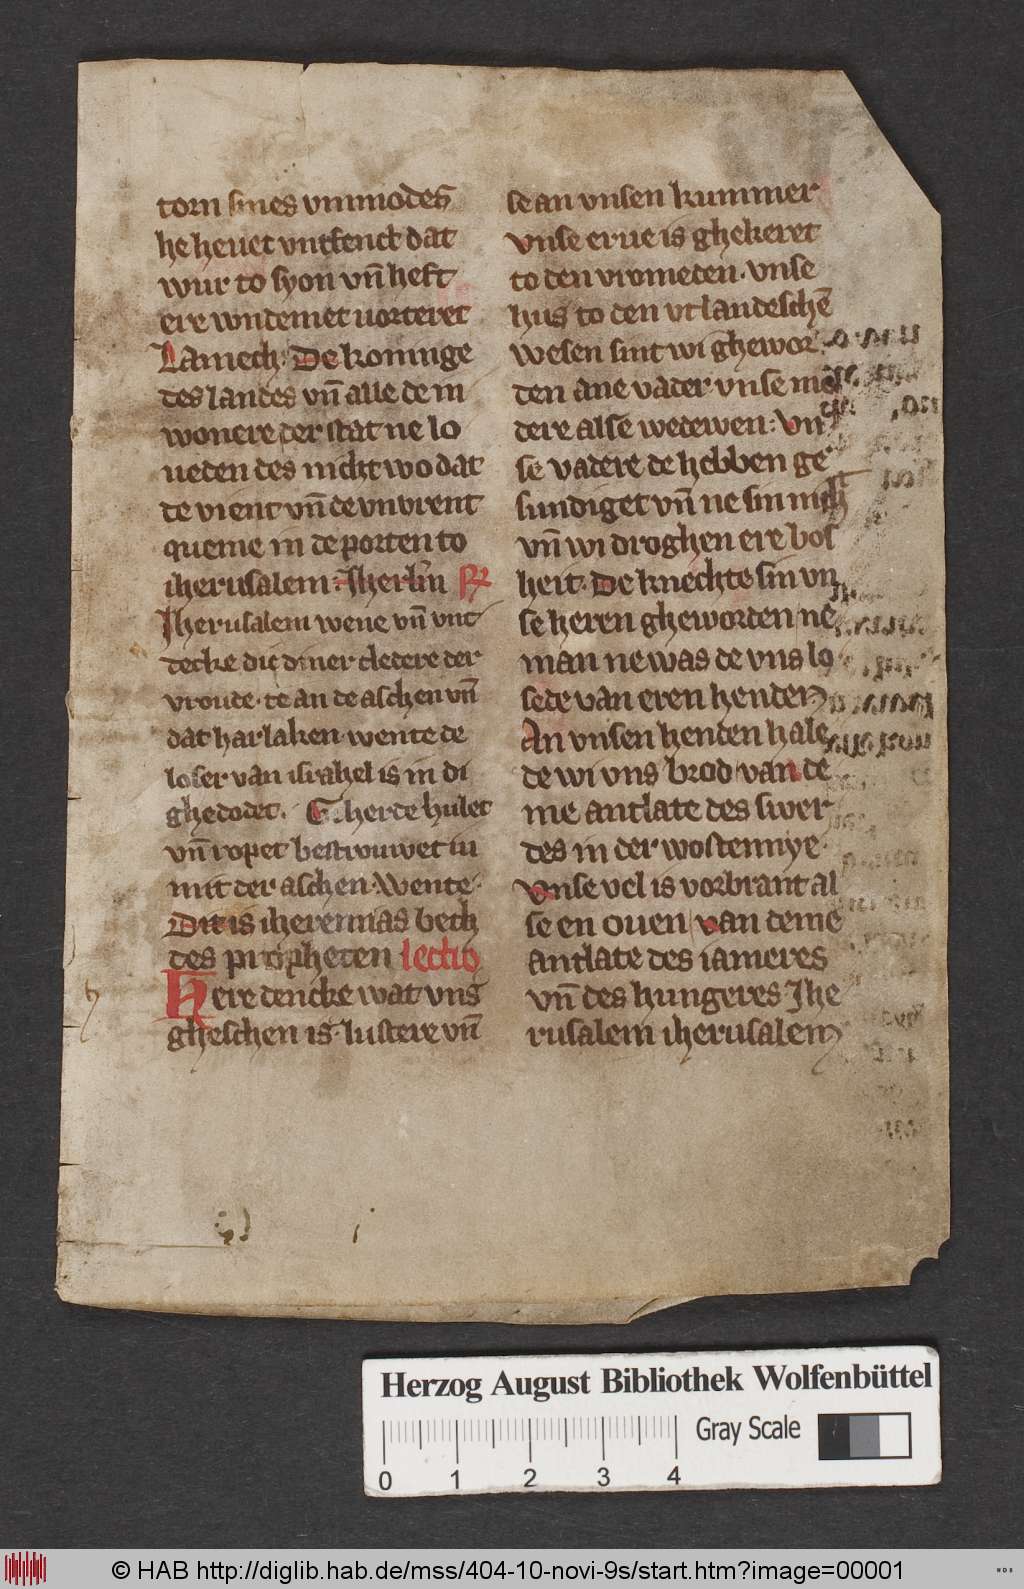 torn sines vnmodes
he heuet vntfenct dat
wur to syon vn̄ heft
ere vundemet uorteret
Lamech. De koninge
des landes vn̄ alle de in
wonere der stat ne lo
ueden des nicht wo dat
de vient vn̄ de vnvrent
queme in de porten to
iherusalem. Iherlm̄ R
Iherusalem wene vn̄ vnt
decke di diner cledere der
vroude. te an de aschen vn̄
dat harlaken. wente de
loser van israhel is in di
ghedodet. herde hulet
vn̄ ropet bestrouwet iu
mit der aschen. Wente.
Dit is iheremias bech
des propheten lectio
Here dencke wat vns
gheschen is. lustere vn̄
se an vnsen kummer
vnse erue is ghekeret
to den vromeden. vnse
hus to den vtlandeschē
wesen sint wi ghewor
den ane vader vnse me
dere alse wedewen: vn
se vadere de hebben ge
sundiget vn̄ ne sin nicht
vn̄ wi droghen ere bos
heit. De knechte sin vn
se heren gheworden ne
man ne was de vns lo
sede van eren henden
An vnsen henden hale
de wi vns brod van de
me antlate des swer
des in der wostennye.
vnse vel is vorbrant al
se en ouen van deme
antlate des iameres
vn̄ des hungeres Ihe
rusalem iherusalem
h
Herzog August Bibliothek Wolfenbüttel
Gray Scale
0 1 2 3 4
© HAB http://diglib.hab.de/mss/404-10-novi-9s/start.htm?image=00001